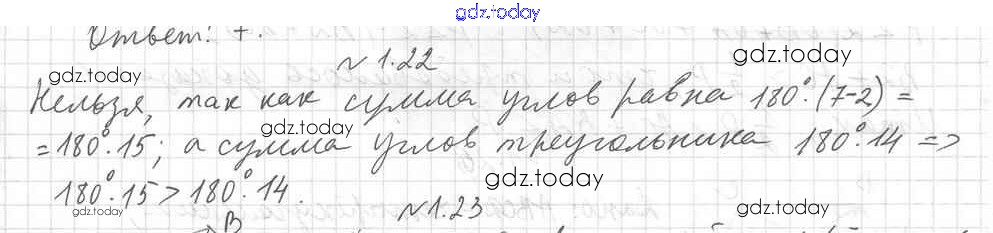 gdz.today
Ответ: +.
№ 1.22
gdz.today
gdz.today
Нельзя, так как сумма углов равна 180°·(7-2) =
gdz.today
= 180°·15; а сумма углов треугольника 180°·14 =>
gdz.today
180°·15 > 180°·14.
gdz.today
№ 1.23
gdz.today
B